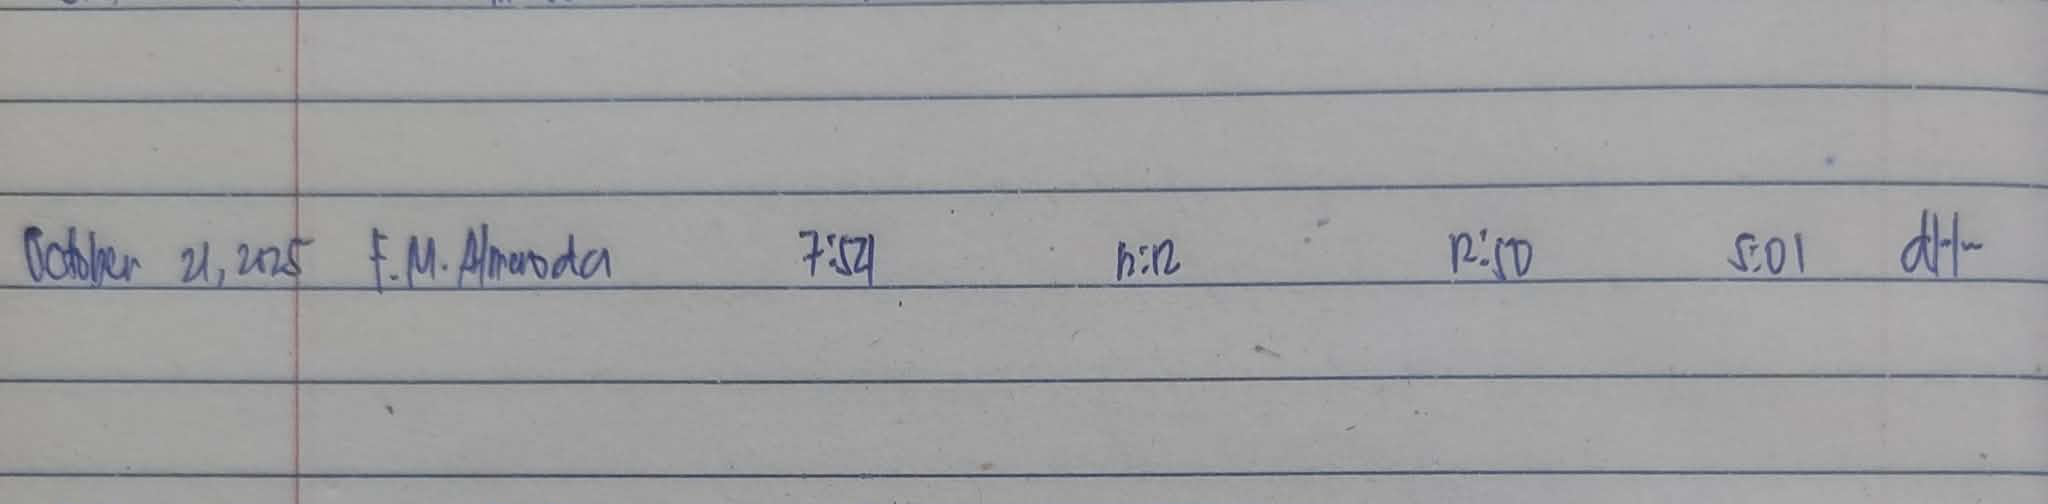 October 21, 2025 F. M. Almeroda 7:54 12:12 12:50 5:01